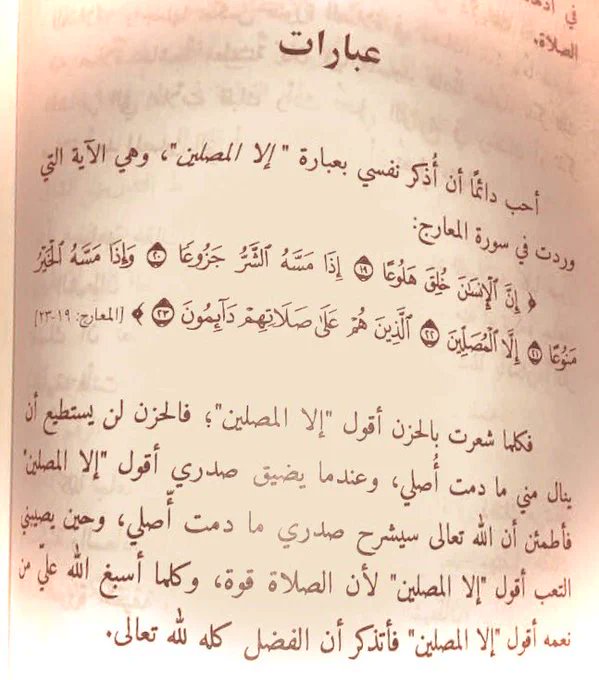 الصلاة.
عبارات
أحب دائمًا أن أُذكر نفسي بعبارة "إلا المصلين"، وهي الآية التي
وردت في سورة المعارج:
﴿ إِنَّ ٱلْإِنسَٰنَ خُلِقَ هَلُوعًا ١٩ إِذَا مَسَّهُ ٱلشَّرُّ جَزُوعًا ٢٠ وَإِذَا مَسَّهُ ٱلْخَيْرُ
مَنُوعًا ٢١ إِلَّا ٱلْمُصَلِّينَ ٢٢ ٱلَّذِينَ هُمْ عَلَىٰ صَلَاتِهِمْ دَآئِمُونَ ٢٣ ﴾ [المعارج: ١٩-٢٣]
فكلما شعرت بالحزن أقول "إلا المصلين"؛ فالحزن لن يستطيع أن
ينال مني ما دمت أُصلي، وعندما يضيق صدري أقول "إلا المصلين"
فأطمئن أن الله تعالى سيشرح صدري ما دمت أُصلي، وحين يصيبني
التعب أقول "إلا المصلين" لأن الصلاة قوة، وكلما أسبغ الله عليّ من
نعمه أقول "إلا المصلين" فأتذكر أن الفضل كله لله تعالى.